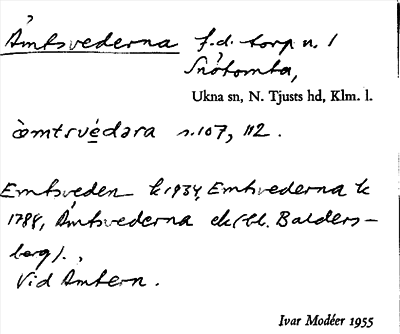 Åmtsvederna f.d. torp u. 1
Snötomta,
Ukna sn, N. Tjusts hd, Klm. l.
òmtsvédəra s. 107, 112.
Emtsveden k 1934, Emtsvederna k
1788, Åmtsvederna ek (bl. Balders-
berg).,
Vid Åmtern.
Ivar Modéer 1955